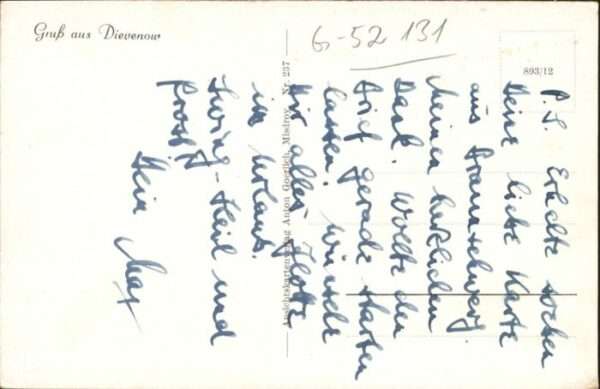 Gruß aus Dievenow
6-52 131
893/12
Ansichtskartenverlag Anton Goerlich, Misdroy. Nr. 237
P.S. Erhalte soeben
Deine liebe Karte
aus Braunschweig
Meinen herzlichen
Dank. Wollte den
Brief gerade starten
lassen. Wünsche
Dir alles Gute
im Urlaub.
Swing-Heil und
Prosit
Dein Max